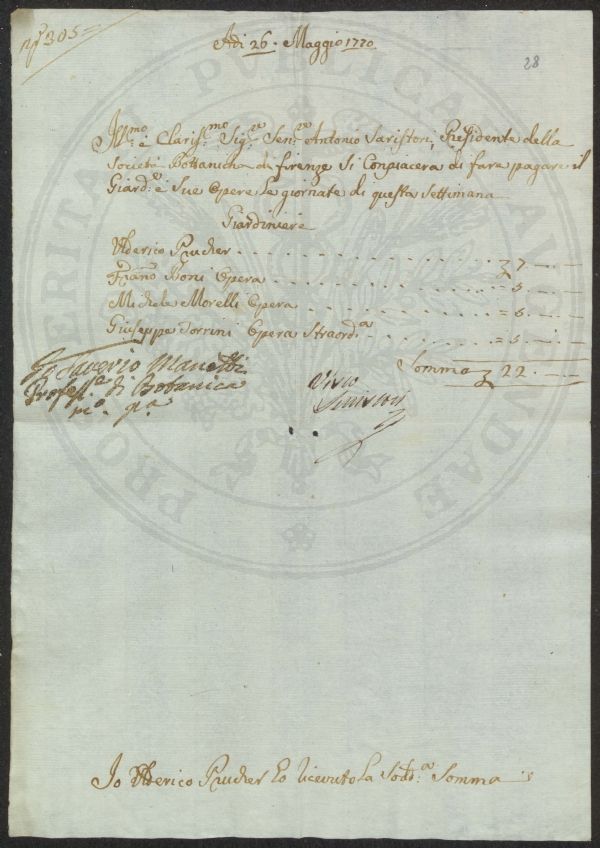 N.° 305
Adi 26. Maggio 1770.
28
Ill.mo e Claris.mo Sig.re Sen.re Antonio Saristori, Presidente della
Società Bottanicha di firenze Si Conpiacera di fare pagare il
Giard.e e Sue Opere Le giornate di questa Settimana
Giardiniere
Ulderico Prucker . . . . . . . . £ 7 . — . —
Opera . . . . . . . . = 5 . — . —
Michele Morelli Opera . . . . . . . . = 5 . — . —
Giuseppe Torrini Opera Straord.a . . = 5 . — . —
Somma £ 22 . — . —
G. Saverio Manetti
Profess.e di Botanica
m.o p.a
Visto
PRO PUBLICAE AUGENDAE
Io Ulderico Prucker Ho Ricevuto La Sodd.a Somma